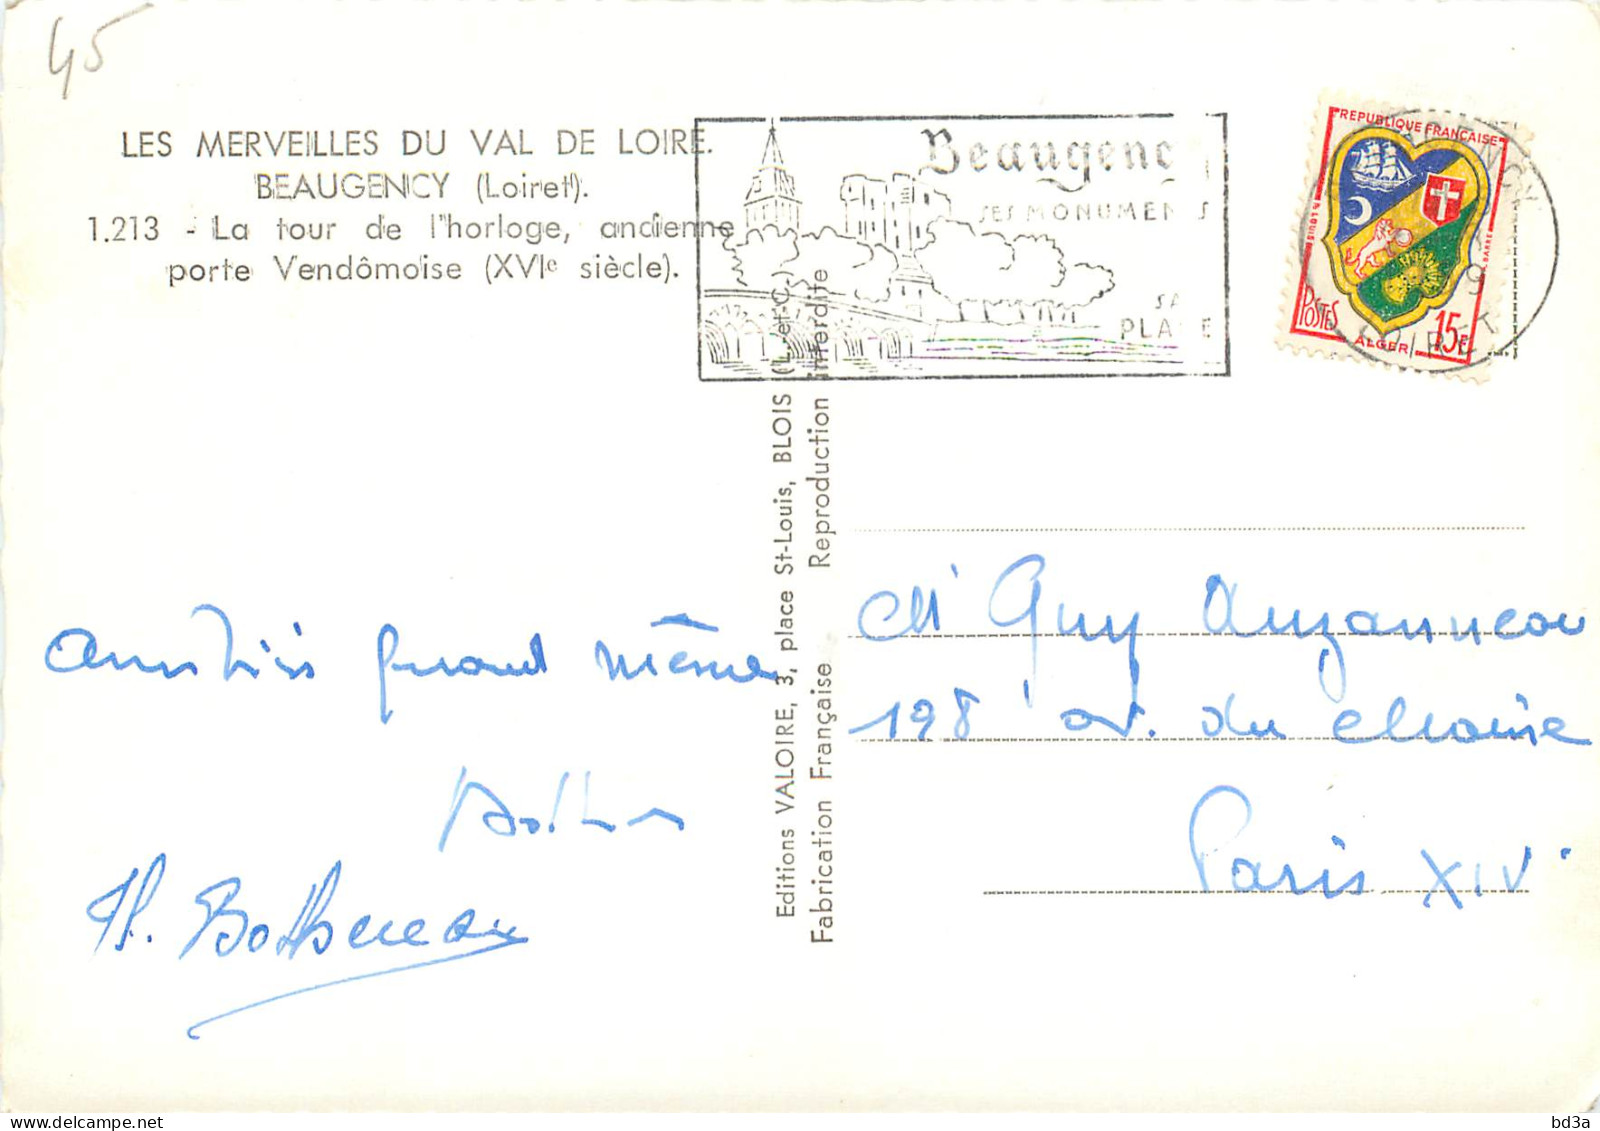 45
LES MERVEILLES DU VAL DE LOIRE.
BEAUGENCY (Loiret).
1.213 - La tour de l'horloge, ancienne
porte Vendômoise (XVIe siècle).
Beaugenc
SES MONUMENTS
SA
PLAGE
REPUBLIQUE FRANÇAISE
POSTES
ALGER
15F
LOIRET
Editions VALOIRE, 3, place St-Louis, BLOIS (L.-et-C.)
Fabrication Française Reproduction interdite
Amitiés quand même
H. Bothereau
Mr Guy Auzanneau
198 av. du Maine
Paris XIV